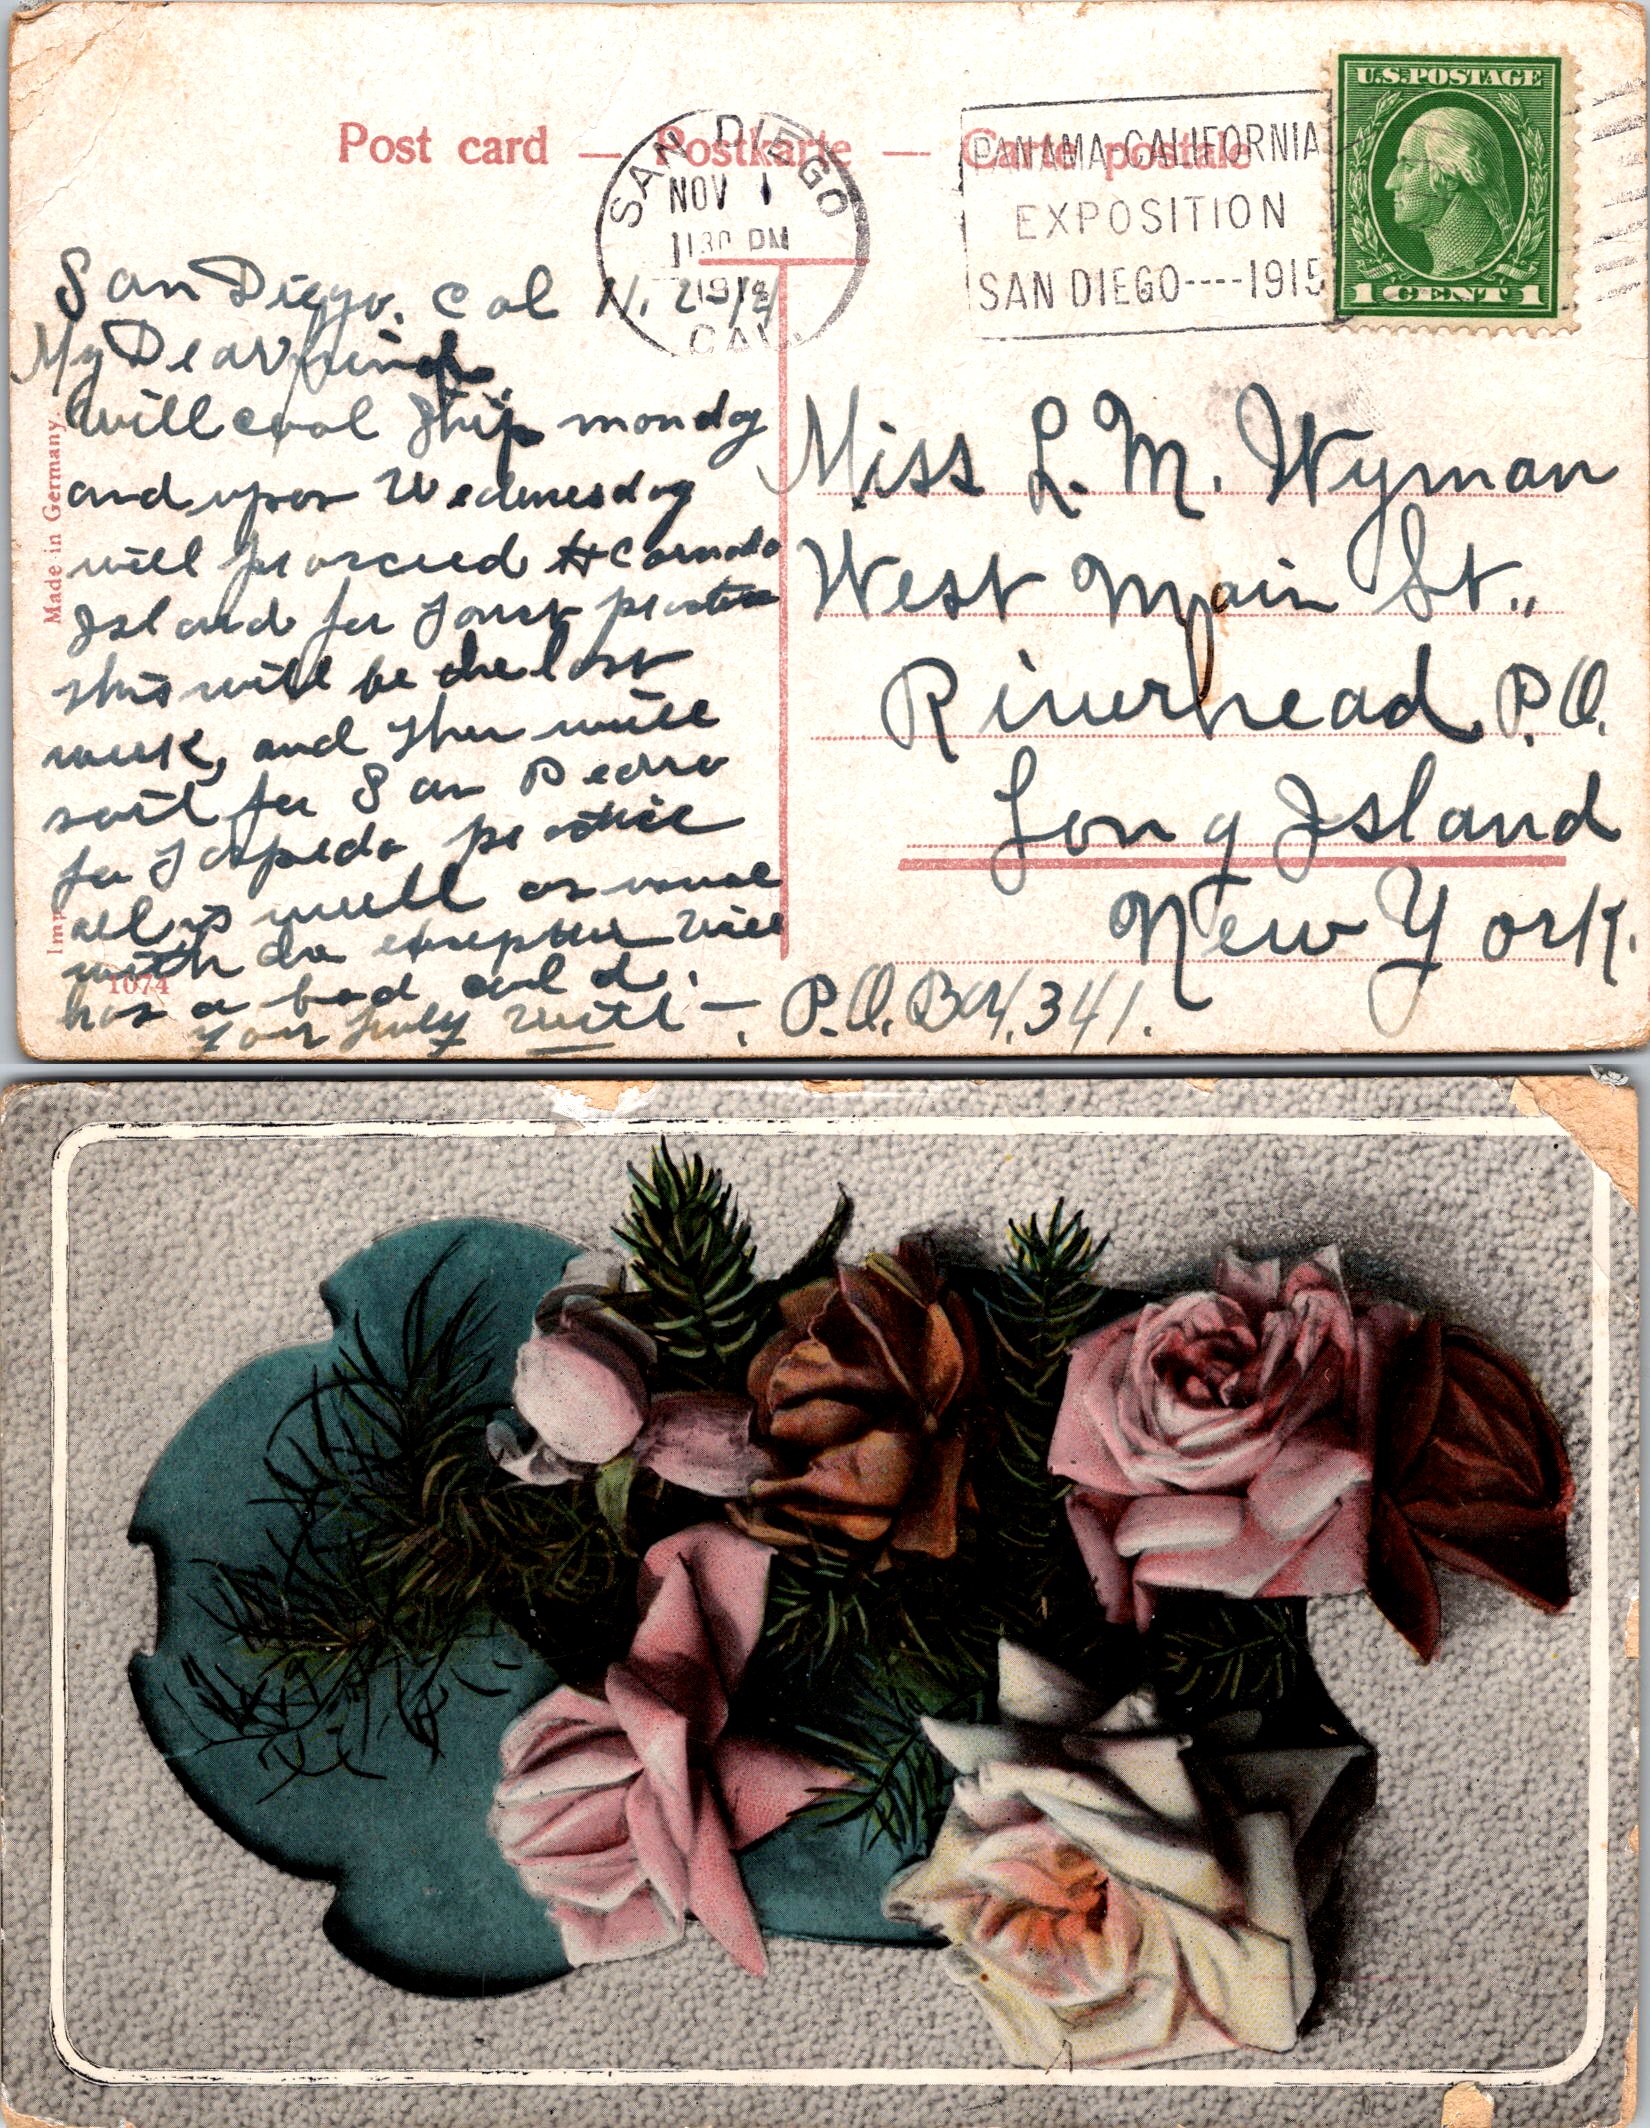 Post card — Postkarte — Carte postale
SAN DIEGO
NOV 1
1130 PM
CAL.
PANAMA-CALIFORNIA
EXPOSITION
SAN DIEGO----1915
U.S. POSTAGE
1 CENT 1
San Diego. Cal
My Dear friend
will coal ship monday
and upon Wednesday
will
Island for
this will be the last
week, and then will
sail for San Pedro
for Torpedo practice
all is well as usual
with the Will
has a bad cold.
Your Truly Will —.
Made in Germany
1074
Miss L. M. Wyman
West Main St.,
Riverhead, P.O.
Long Island
New York.
P.O. Box. 341.